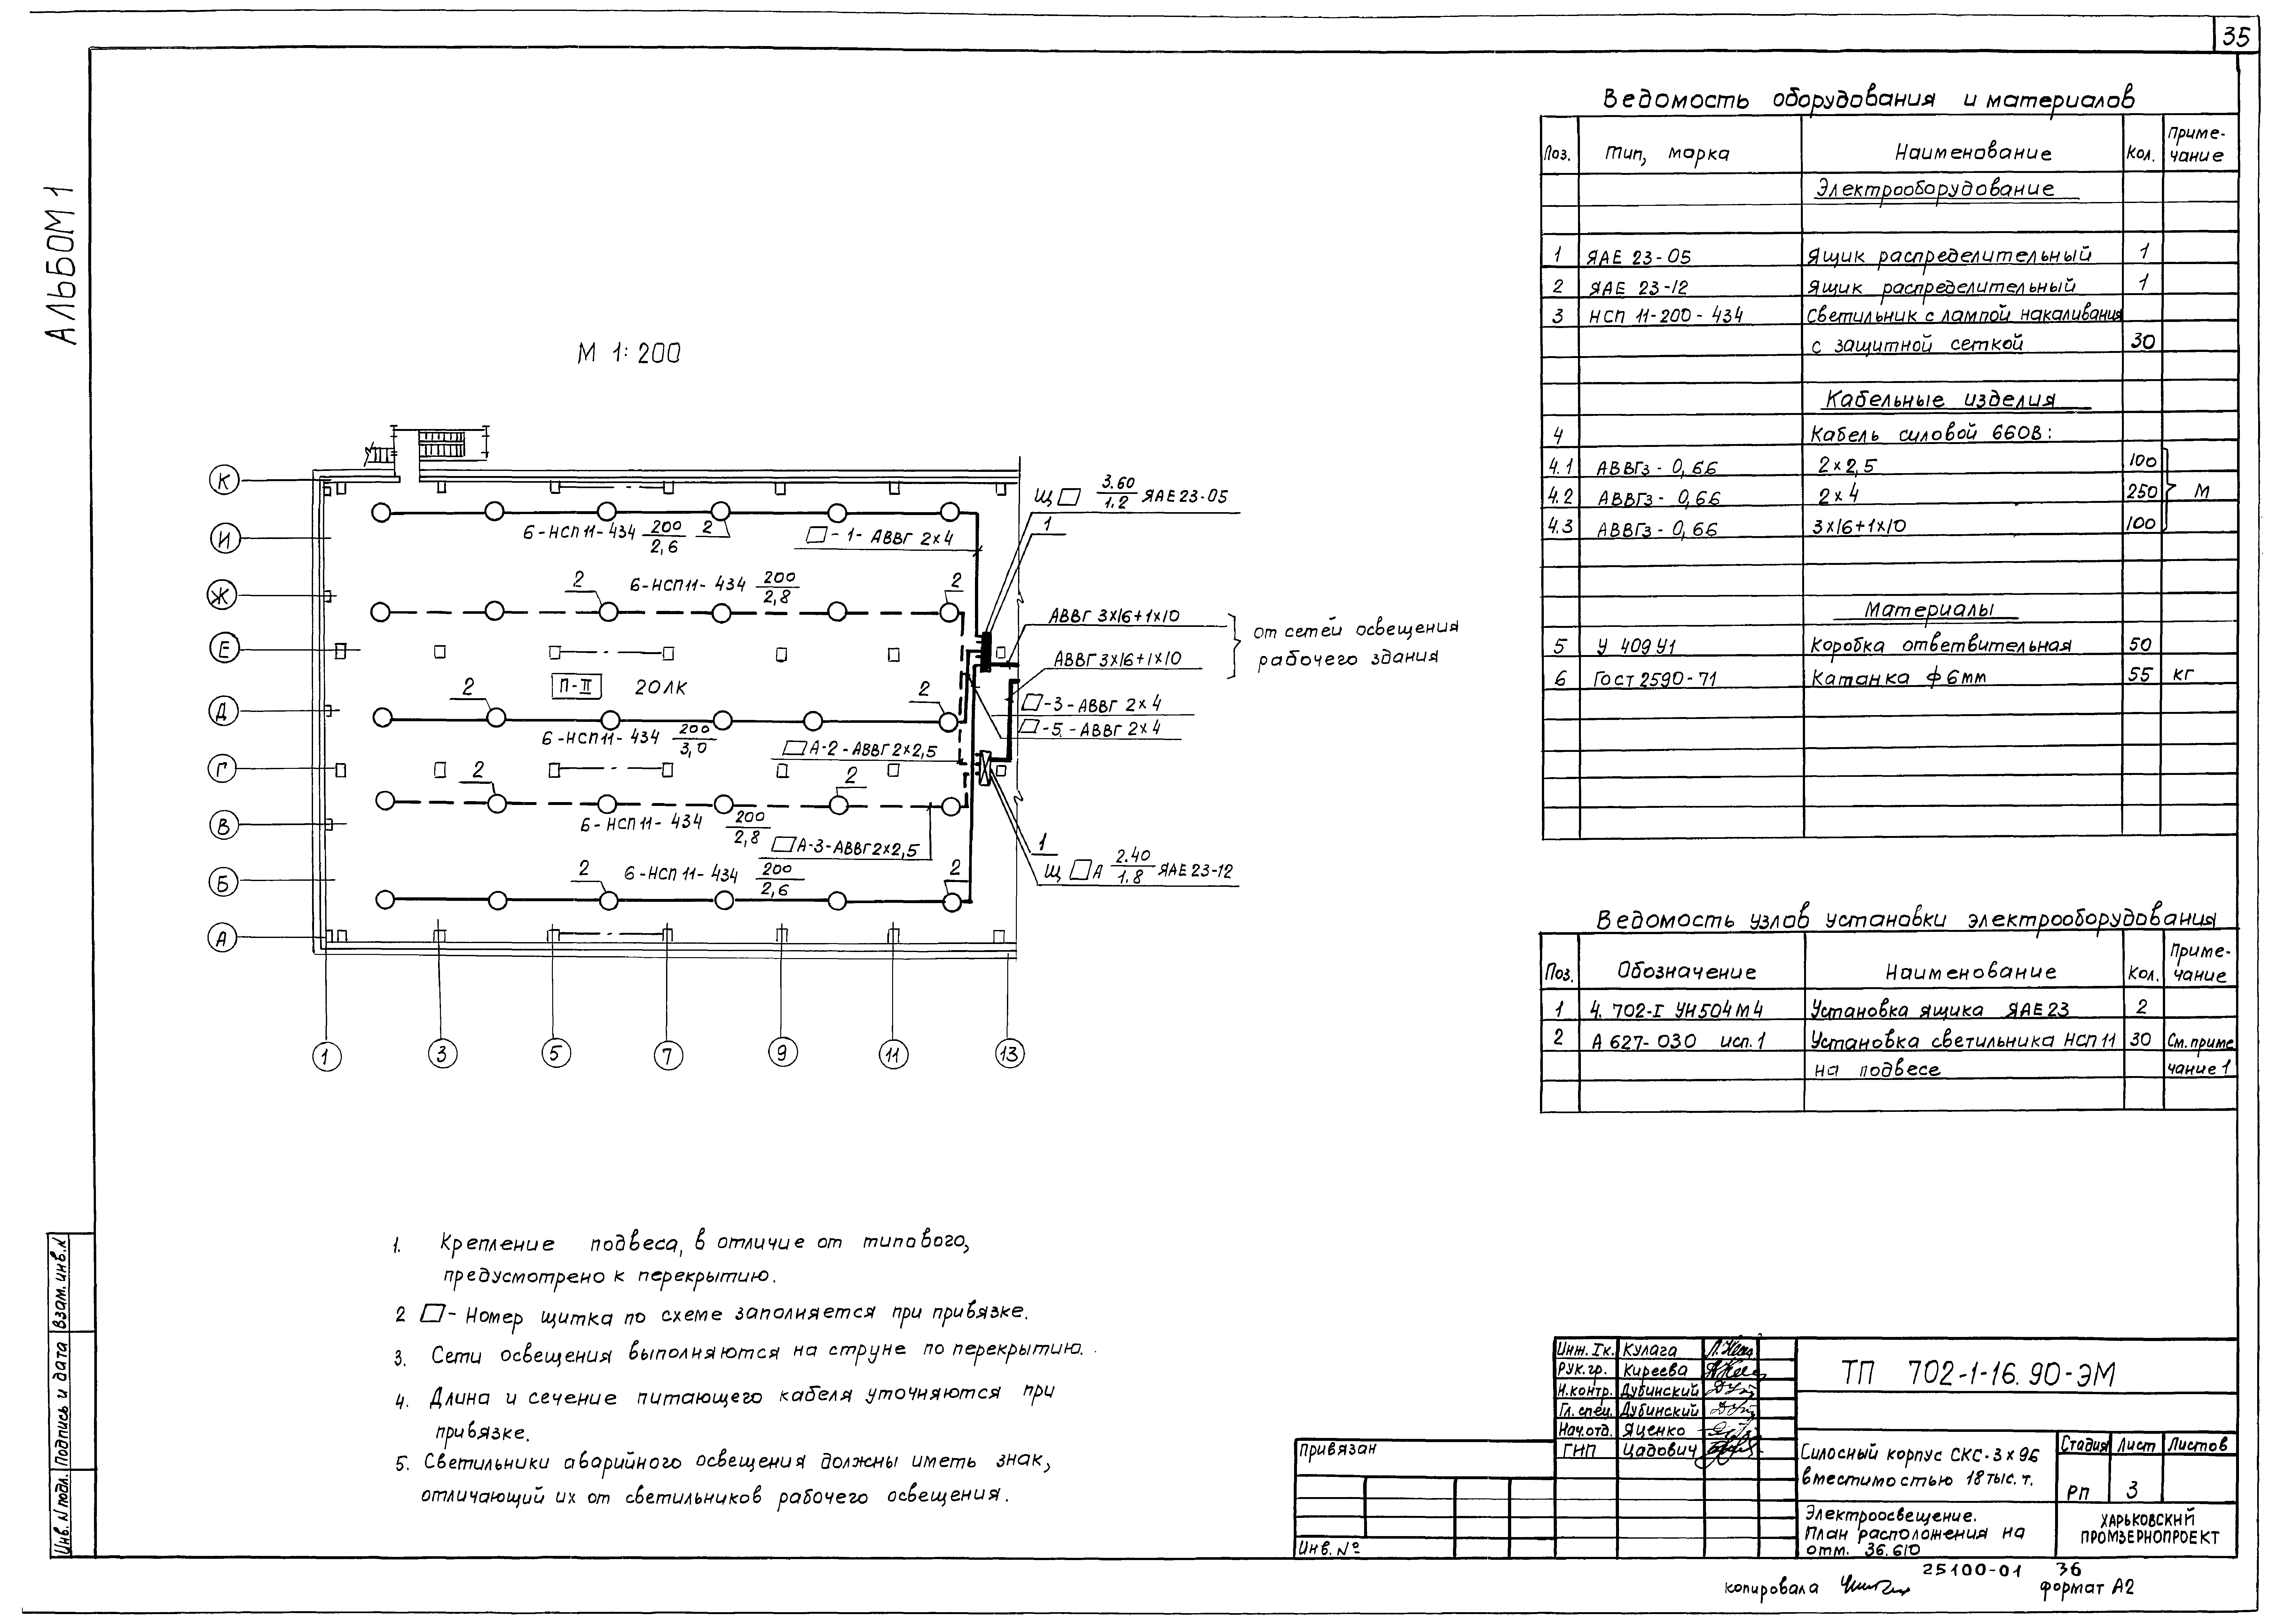 35
АЛЬБОМ 1
М 1:200
К
И
Ж
Е
Д
Г
В
Б
А
1
3
5
7
9
11
13
6-НСП11-434 200/2,6 2
□-1-АВВГ 2×4
2 6-НСП11-434 200/2,8 2
2 П-II 20ЛК 2
6-НСП11-434 200/3,0
□А-2-АВВГ 2×2,5
2 2
6-НСП11-434 200/2,8
□А-3-АВВГ 2×2,5
2 6-НСП11-434 200/2,6 2
Щ □ 3.60/1.2 ЯАЕ 23-05
1
АВВГ 3×16+1×10
АВВГ 3×16+1×10
от сетей освещения
рабочего здания
□-3-АВВГ 2×4
□-5-АВВГ 2×4
1
Щ □ А 2.40/1.8 ЯАЕ 23-12
Ведомость оборудования и материалов
Поз. Тип, марка Наименование Кол. Приме-
чание
Электрооборудование
1 ЯАЕ 23-05 Ящик распределительный 1
2 ЯАЕ 23-12 Ящик распределительный 1
3 НСП 11-200-434 Светильник с лампой накаливания
с защитной сеткой 30
Кабельные изделия
4 Кабель силовой 660В:
4.1 АВВГз-0,66 2×2,5 100
4.2 АВВГз-0,66 2×4 250 м
4.3 АВВГз-0,66 3×16+1×10 100
Материалы
5 У 409 У1 Коробка ответвительная 50
6 Гост 2590-71 Катанка ф 6мм 55 кг
Ведомость узлов установки электрооборудования
Поз. Обозначение Наименование Кол. Приме-
чание
1 4.702-I УН504М4 Установка ящика ЯАЕ 23 2
2 А627-030 исп.1 Установка светильника НСП 11 30 См. приме
на подвесе чание 1
1. Крепление подвеса, в отличие от типового,
предусмотрено к перекрытию.
2 □-Номер щитка по схеме заполняется при привязке.
3. Сети освещения выполняются на струне по перекрытию.
4. Длина и сечение питающего кабеля уточняются при
привязке.
5. Светильники аварийного освещения должны иметь знак,
отличающий их от светильников рабочего освещения.
Инв. N подл. Подпись и дата Взам. инв. N
Привязан
Инв. №
Инж. Iк. Кулага
Рук. гр. Киреева
Н.контр. Дубинский
Гл. спец. Дубинский
Нач.отд. Яценко
ГИП Цадович
ТП 702-1-16.90-ЭМ
Силосный корпус СКС-3×96
вместимостью 18 тыс. т.
Стадия Лист Листов
РП 3
Электроосвещение.
План расположения на
отм. 36.610
ХАРЬКОВСКИЙ
ПРОМЗЕРНОПРОЕКТ
25100-01 36
копировала
формат А2